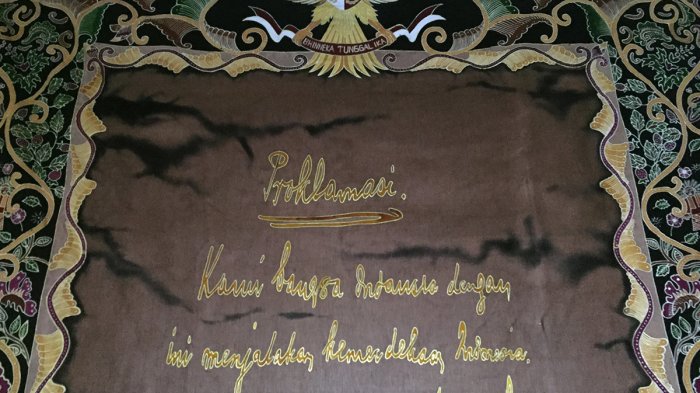 BHINNEKA TUNGGAL IKA
Proklamasi.
Kami bangsa Indonesia dengan
ini menjatakan kemerdekaan Indonesia.